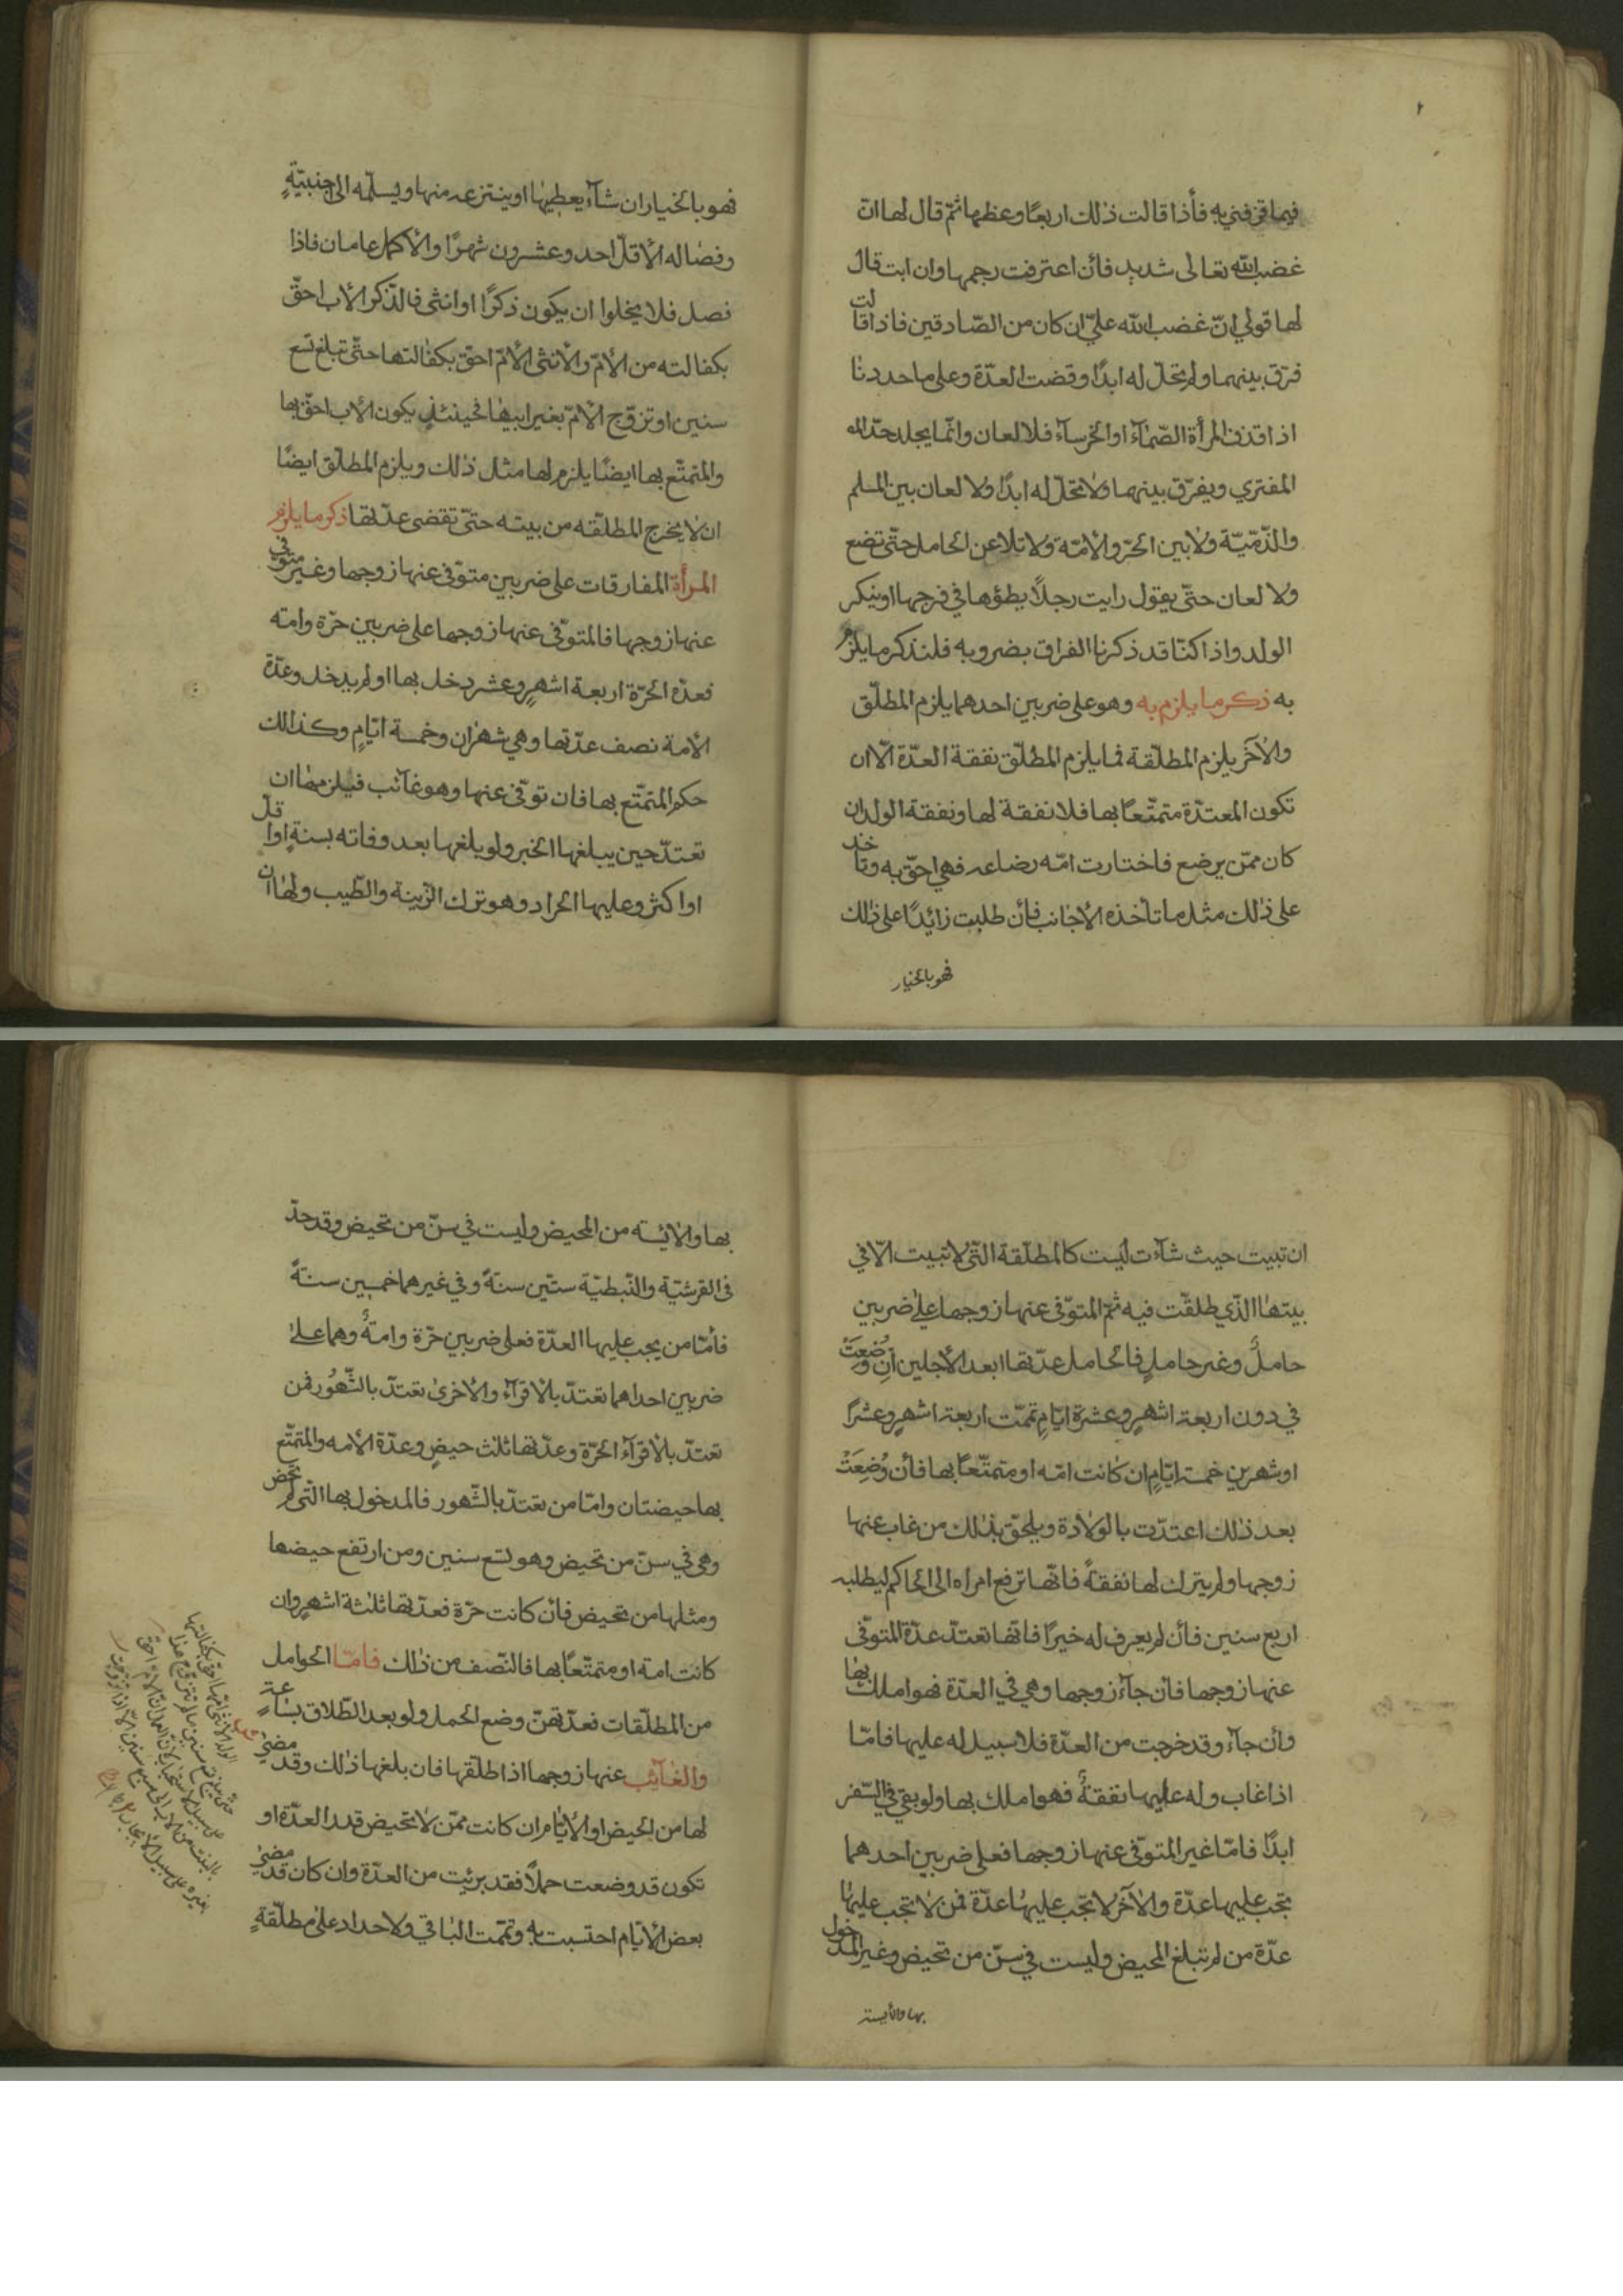 فيما قرفني به فأذا قالت ذلك اربعًا وعظها ثمّ قال لها انّ
غضب الله تعالى شديد فأن اعترفت رجمها وان ابت قال
لها قولي انّ غضب الله عليّ ان كان من الصّادقين فاذا قالت
فرّق بينهما ولم تحلّ له ابدًا وقضت العدّة وعلى ما حددنا
اذا قذف المرأة الصّمّاء او الخرسآء فلا لعان وانّما يجلد حدّ
المفتري ويفرّق بينهما ولا تحلّ له ابدًا ولا لعان بين المسلم
والذّميّة ولا بين الحرّ والأمّة ولا تلاعن الحامل حتّى تضع
ولا لعان حتّى يقول رايت رجلًا يطؤها في فرجها او ينكر
الولد واذا كنّا قد ذكرنا الفراق بضروبه فلنذكر ما يلزم
به ذكر ما يلزم به وهو على ضربين احدهما يلزم المطلّق
والأخر يلزم المطلّقة فما يلزم المطلّق نفقة العدّة الّا ان
تكون المعتدّة متمتّعًا بها فلا نفقة لها ونفقة الولد ان
كان ممّن يرضع فاختارت امّه رضاعه فهي احقّ به وتاخذ
على ذلك مثل ما تأخذه الأجانب فأن طلبت زائدًا على ذلك
فهو بالخيار
فهو بالخيار ان شآء يعطيها او ينتزعه منها ويسلّمه الى اجنبيّةٍ
وفصاله الأقلّ احد وعشرون شهرًا والأكمل عامان فاذا
فصل فلا يخلوا ان يكون ذكرًا او انثى فالذّكر الأب احقّ
بكفالته من الأمّ والأنثى الأمّ احقّ بكفالتها حتّى تبلغ تسع
سنين او تزوّج الأمّ بغير ابيها فحينئذٍ يكون الأب احقّ بها
والمتمتّع بها ايضًا يلزم لها مثل ذلك ويلزم المطلّق ايضًا
ان لا يخرج المطلّقه من بيته حتّى تقضى عدّتها ذكر ما يلزم
المرأة المفارقات على ضربين متوفّى عنها زوجها وغير متوفى
عنها زوجها فالمتوفّى عنها زوجها على ضربين حرّة وامّه
فعدّة الحرّة اربعة اشهرٍ وعشر دخل بها او لم يدخل وعدّة
الأمة نصف عدّتها وهي شهران وخمسة ايّامٍ وكذالك
حكم المتمتّع بها فان توفّى عنها وهو غآئب فيلزمها ان
تعتدّ حين يبلغها الخبر ولو يلغها بعد وفاته بسنةٍ او اقلّ
او اكثر وعليها الحداد وهو ترك الزّينة والطّيب ولها ان
ان تبيت حيث شآءت ليست كالمطلّقة الّتي لا تبيت الّا في
بيتها الّذي طلقّت فيه ثمّ المتوفّى عنها زوجها على ضربين
حاملٌ وغير حاملٍ فالحامل عدّتها ابعد الأجلين ان وُضِعَتْ
في دون اربعة اشهرٍ وعشرة ايّامٍ تمّمت اربعة اشهرٍ وعشرًا
او شهرين خمسة ايّامٍ ان كانت امّه او متمتّعًا بها فأن وُضِعَتْ
بعد ذلك اعتدّت بالولادة ويلحق بذلك من غاب عنها
زوجها ولم يترك لها نفقةً فانّها ترفع امراه الى الحاكم ليطلبه
اربع سنين فأن لم يعرف له خبرًا فانّها تعتدّ عدّة المتوفّى
عنها زوجها فأن جآء زوجها وهي في العدّة فهو املك بها
وأن جآء وقد خرجت من العدّة فلا سبيل له عليها فامّا
اذا غاب وله عليها نفقةٌ فهو املك بها ولو بقي في السّفر
ابدًا فامّا غير المتوفّى عنها زوجها فعلى ضربين احدهما
تجب عليها عدّة والأخر لا تجب عليها عدّة فمن لا تجب عليها
عدّة من لم تبلغ المحيض وليست في سنّ من تحيض وغير المدخول
بها والأيسة
بها والأيسه من المحيض وليست في سنّ من تحيض وقد حدّ
فى القرشيّة والنّبطيّة ستّين سنةً وفي غيرهما خمسين سنةً
فأمّا من يجب عليها العدّة فعلى ضربين حرّة وامةٌ وهما على
ضربين احداهما تعتدّ بالأقرآء والأخرى تعتدّ بالشّهُور فمن
تعتدّ بالأقرآء الحرّة وعدّتها ثلث حيضٍ وعدّة الأمه والمتمتّع
بها حيضتان وامّا من تعتدّ بالشّهور فالمدخول بها الّتي لم تحض
وهي في سنّ من تحيض وهو تسع سنين ومن ارتفع حيضها
ومثلها من تحيض فأن كانت حرّة فعدّتها ثلثة اشهرٍ وان
كانت امة او متمتّعًا بها فالنّصف من ذالك فامّا الحوامل
من المطلّقات فعدّتهنّ وضع الحمل ولو بعد الطّلاق بساعةٍ
والغآئب عنها زوجها اذا طلّقها فان بلغها ذلك وقد مضىٰ
لها من الحيض او الأيّام ان كانت ممّن لا تحيض قدر العدّة او
تكون قد وضعت حملًا فقد برئيت من العدّة وان كان قد مضىٰ
بعض الأيّام احتسبت به وتمّمت الباقي ولا حداد على مطلّقةٍ
الولد الأنثى امّها احق بكفالتها